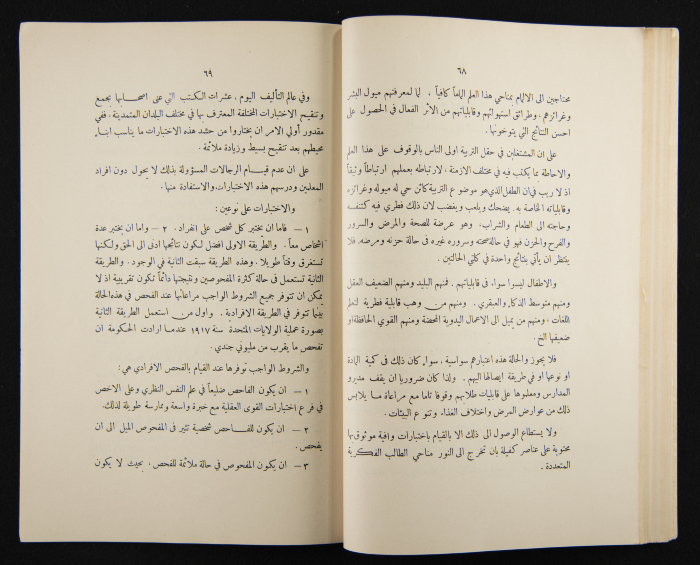 ٦٨
محتاجين الى الالمام بمناحي هذا العلم الماماً كافياً . لما لمعرفتهم ميول البشر
وغرائزهم، وطرائق استهوائهم وقابلياتهم من الأثر الفعال في الحصول على
احسن النتائج التي يتوخونها .
على ان المشتغلين في حقل التربية اولى الناس بالوقوف على هذا العلم
والاحاطة بما يكتب فيه في مختلف الازمنة، لارتباطه بعملهم ارتباطاً وثيقاً
اذ لا ريب في ان الطفل الذي هو موضوع التربية كائن حي له ميوله وغرائزه
وقابلياته الخاصة به. يضحك ويلعب ويغضب لان ذلك فطري فيه كتنفسه
وحاجته الى الطعام والشراب، وهو عرضة للصحة والمرض والسرور
والفرح والحزن فهو في حالة صحته وسروره غيره في حالة حزنه ومرضه. فلا
ينتظر ان يأتي بنتائج واحدة في كلتي الحالتين .
والاطفال ليسوا سواء في قابلياتهم . فمنهم البليد ومنهم الضعيف العقل
ومنهم متوسط الذكاء والعبقري . ومنهم من وهب قابلية فطرية لتعلم
اللغات ، ومنهم من يميل الى الاعمال اليدوية المحضة ومنهم القوي الحافظة او
ضعيفها الخ .
فلا يجوز والحالة هذه اعتبارهم سواسية ، سواء كان ذلك في كمية المادة
او نوعها او في طريقة ايصالها اليهم . ولذا كان ضروريا ان يقف مديرو
المدارس ومعلموها على قابليات طلابهم وقوفا تاما مع مراعاة ما يلابس
ذلك من عوارض المرض واختلاف الغذاء وتنوع البيئات .
ولا يستطاع الوصول الى ذلك الا بالقيام باختبارات وافية موثوق بها
محتوية على عناصر كفيلة بان تخرج الى النور مناحي الطالب الفكرية
المتعددة .
٦٩
وفي عالم التأليف اليوم ، عشرات الكتب التي عنى اصحابها بجمع
وتنقيح الاختبارات المختلفة المعترف بها في مختلف البلدان المتمدينة ، ففي
مقدور أولي الامر ان يختاروا من حشد هذه الاختبارات ما يناسب ابناء
محيطهم بعد تنقيح بسيط وزيادة ملائمة .
على ان عدم قيام الرجالات المسؤولة بذلك لا يحول دون افراد
المعلمين ودرسهم هذه الاختبارات، والاستفادة منها .
والاختبارات على نوعين :
١ – فاما ان يختبر كل شخص على انفراد . ٢ – واما ان يختبر عدة
اشخاص معاً . والطريقة الاولى افضل لكون نتائجها ادنى الى الحق ولكنها
تستغرق وقتاً طويلا . وهذه الطريقة سبقت الثانية في الوجود ، والطريقة
الثانية تستعمل في حالة كثرة المفحوصين ونتيجتها دائماً تكون تقريبية اذ لا
يمكن ان تتوفر جميع الشروط الواجب مراعاتها عند الفحص في هذه الحالة
بينما تتوفر في الطريقة الافرادية . واول من استعمل الطريقة الثانية
بصورة عملية الولايات المتحدة سنة ١٩١٧ عندما ارادت الحكومة ان
تفحص ما يقرب من مليوني جندي .
والشروط الواجب توفرها عند القيام بالفحص الافرادي هي :
١ – ان يكون الفاحص ضليعاً في علم النفس النظري وعلى الاخص
في فرع اختبارات القوى العقلية مع خبرة واسعة وممارسة طويلة لذلك .
٢ – ان يكون للفاحص شخصية تثير في المفحوص الميل الى ان
يفحص .
٣ – ان يكون المفحوص في حالة ملائمة للفحص ، بحيث لا يكون